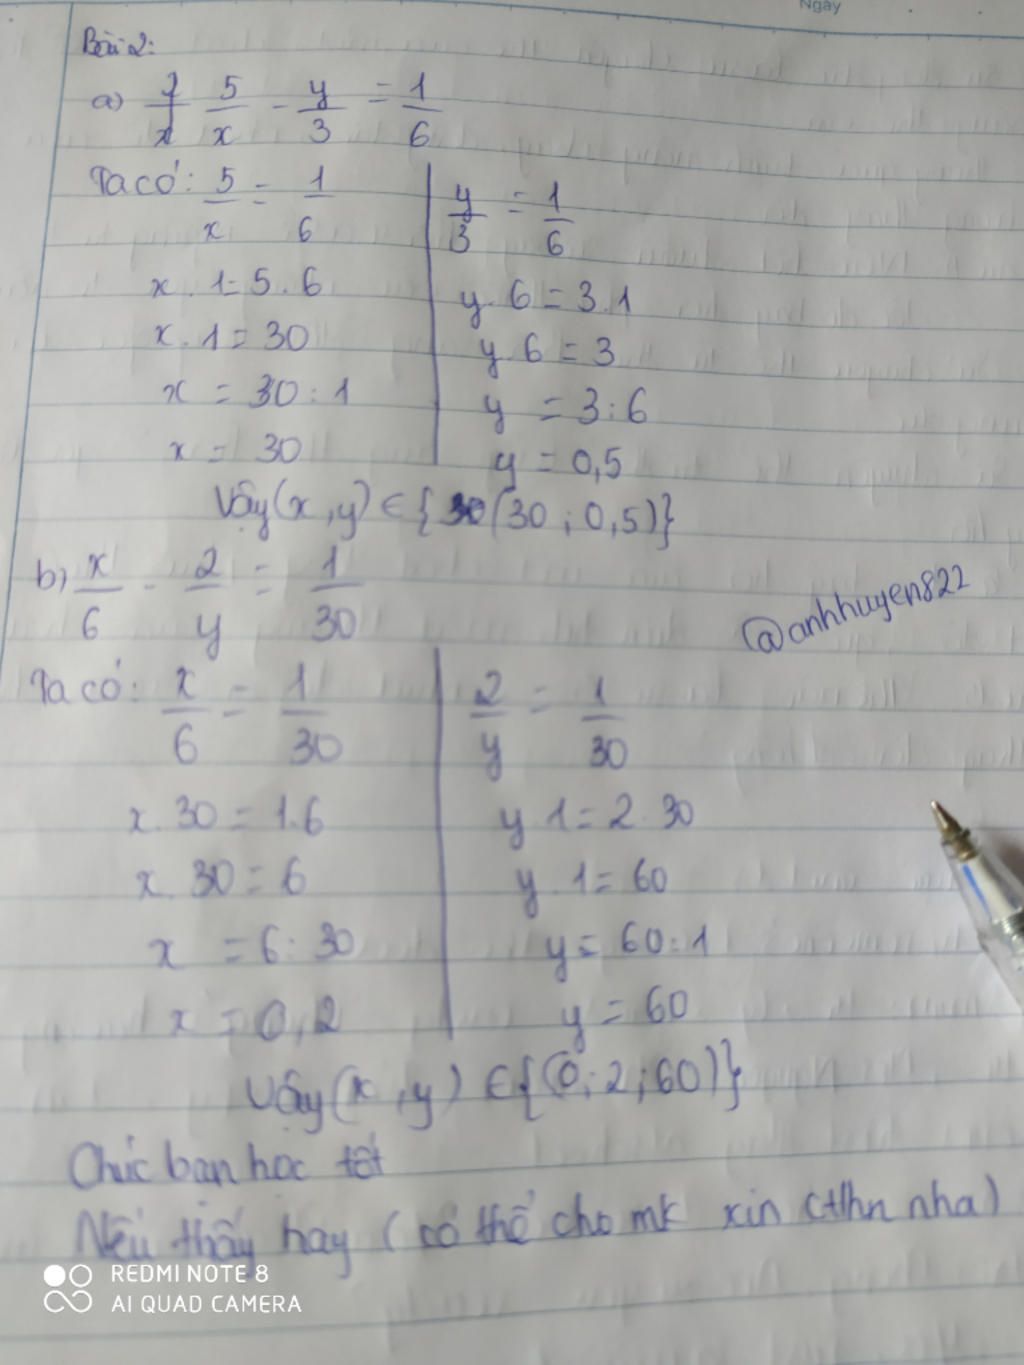 Ngày
Bài 2:
a) 5/x - y/3 = 1/6
Ta có: 5/x = 1/6
x . 1 = 5 . 6
x . 1 = 30
x = 30 : 1
x = 30
y/3 = 1/6
y . 6 = 3 . 1
y . 6 = 3
y = 3 : 6
y = 0,5
Vậy (x, y) ∈ { (30 ; 0,5)}
b) x/6 - 2/y = 1/30
@anhhuyen822
Ta có: x/6 = 1/30
x . 30 = 1 . 6
x . 30 = 6
x = 6 : 30
x = 0,2
2/y = 1/30
y . 1 = 2 . 30
y . 1 = 60
y = 60 : 1
y = 60
Vậy (x, y) ∈ {(0; 2; 60)}
Chúc bạn học tốt
Nếu thấy hay ( có thể cho mk xin ctlhn nha)
REDMI NOTE 8
AI QUAD CAMERA